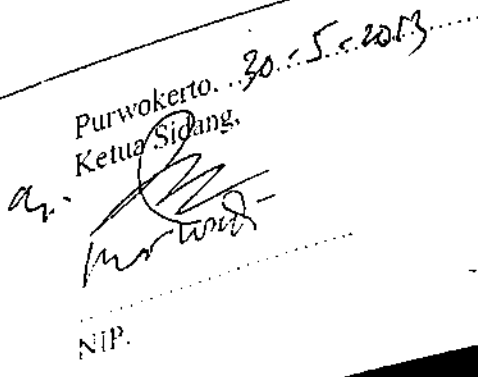 Purwokerto, 30-5-2013
Ketua Sidang,
an.
NIP.